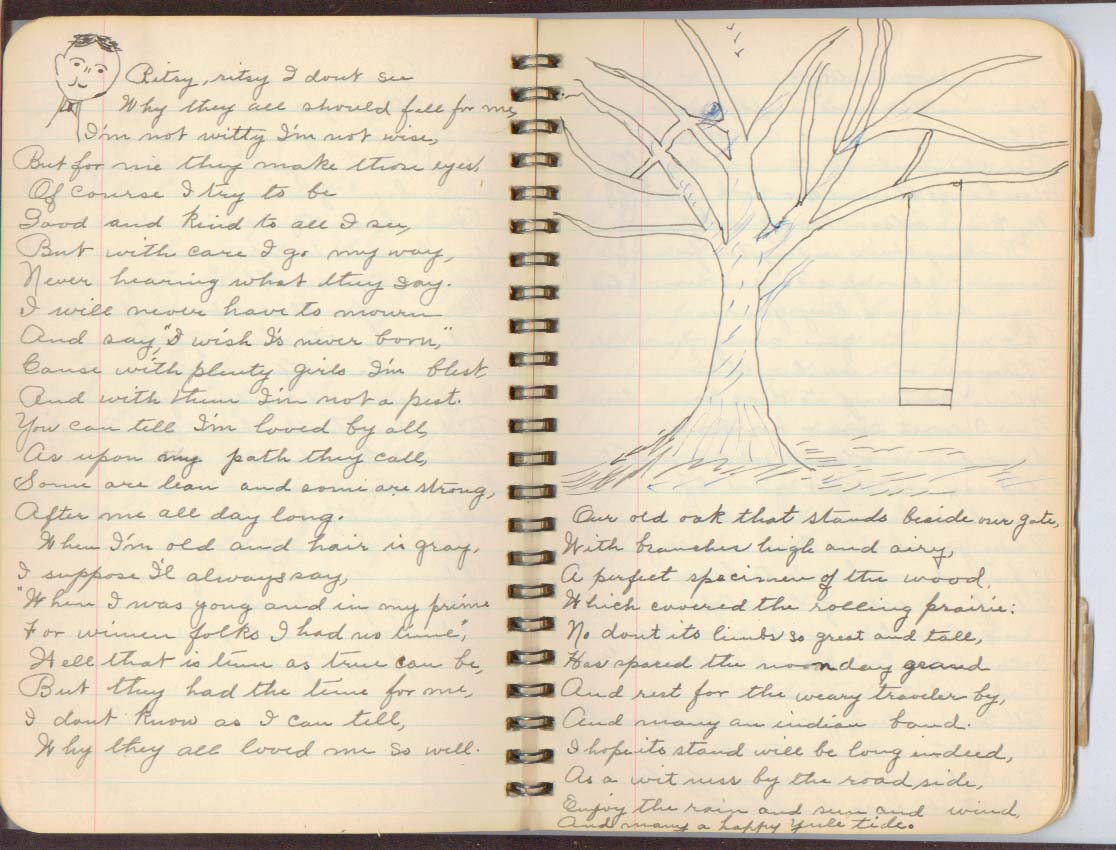 Ritsy, ritsy I dont see
Why they all should fall for me,
I'm not witty I'm not wise,
But for me they make those eyes,
Of course I try to be
Good and kind to all I see,
But with care I go my way,
Never hearing what they say.
I will never have to mourn
And say, "I wish I's never born,"
Cause with plenty girls I'm blest
And with them I'm not a pest.
You can tell I'm loved by all,
As upon my path they call,
Some are lean and some are strong,
After me all day long.
When I'm old and hair is gray,
I suppose I'l always say,
"When I was yong and in my prime
For wimen folks I had no time",
Well that is true as true can be,
But they had the time for me,
I dont know as I can tell,
Why they all loved me so well.
Our old oak that stands beside our gate,
With branches high and airy,
A perfect specimen of the wood,
Which covered the rolling prairie:
No dout its limbs so great and tall,
Has spared the noonday
And rest for the weary traveler by,
And many an indian band.
I hope its stand will be long indeed,
As a wit ness by the road side,
Enjoy the rain and sun and wind,
And many a happy Yule tide.